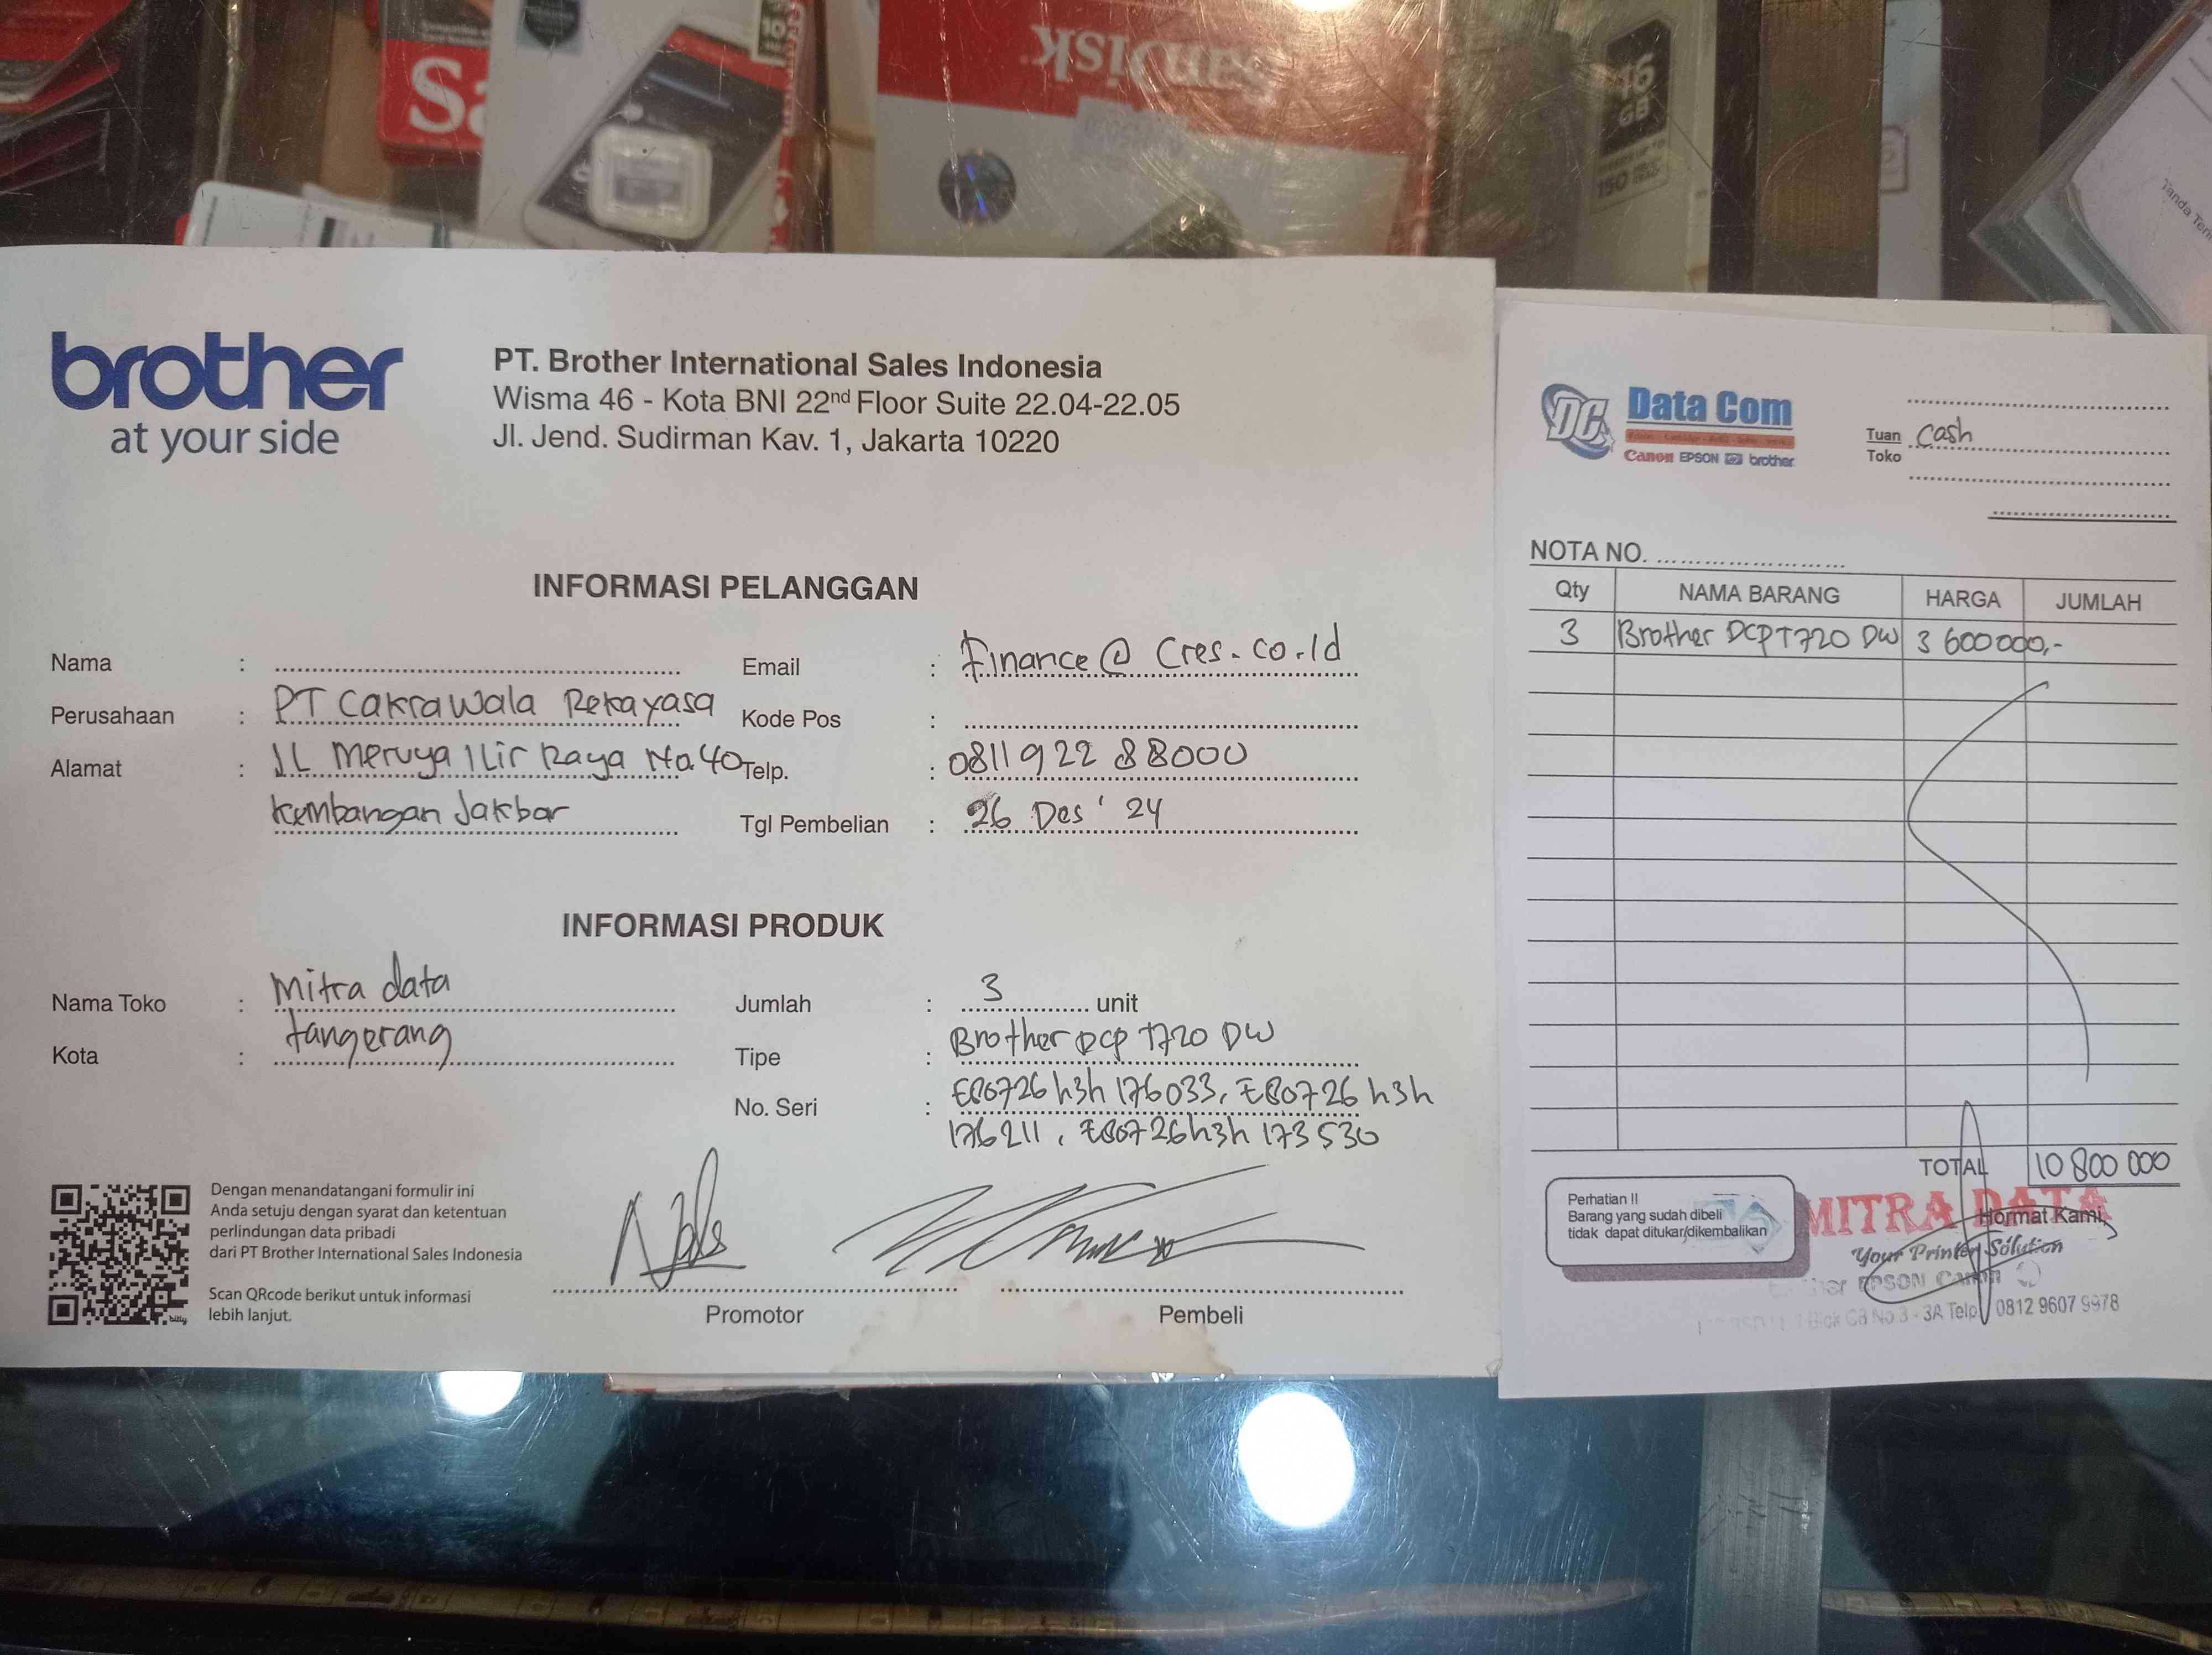 Sa
SanDisk
16
GB
150
Tanda Teri
brother
at your side
PT. Brother International Sales Indonesia
Wisma 46 - Kota BNI 22nd Floor Suite 22.04-22.05
Jl. Jend. Sudirman Kav. 1, Jakarta 10220
INFORMASI PELANGGAN
Nama :
Perusahaan : PT Cakrawala Rekayasa
Alamat : JL Meruya Ilir Raya No.40
Kembangan Jakbar
Email : Finance@ Cres.co.Id
Kode Pos :
Telp. : 0811 922 88000
Tgl Pembelian : 26 Des ' 24
INFORMASI PRODUK
Nama Toko : Mitra data
Kota : tangerang
Jumlah : 3 unit
Tipe : Brother Dcp T720 DW
No. Seri : E80726h3h 176033, E80726h3h
176211, E80726h3h 173530
Dengan menandatangani formulir ini
Anda setuju dengan syarat dan ketentuan
perlindungan data pribadi
dari PT Brother International Sales Indonesia
Scan QRcode berikut untuk informasi
lebih lanjut.
bitly
Promotor
Pembeli
DC
Data Com
Canon EPSON hp brother
Tuan Cash
Toko
NOTA NO.
Qty NAMA BARANG HARGA JUMLAH
3 Brother DCP T720 DW 3 600 000,-
TOTAL 10 800 000
Perhatian !!
Barang yang sudah dibeli
tidak dapat ditukar/dikembalikan
MITRA DATA
Hormat Kami,
Your Printer Solution
EPSON Canon
Blok C8 No.3 - 3A Telp. 0812 9607 9978